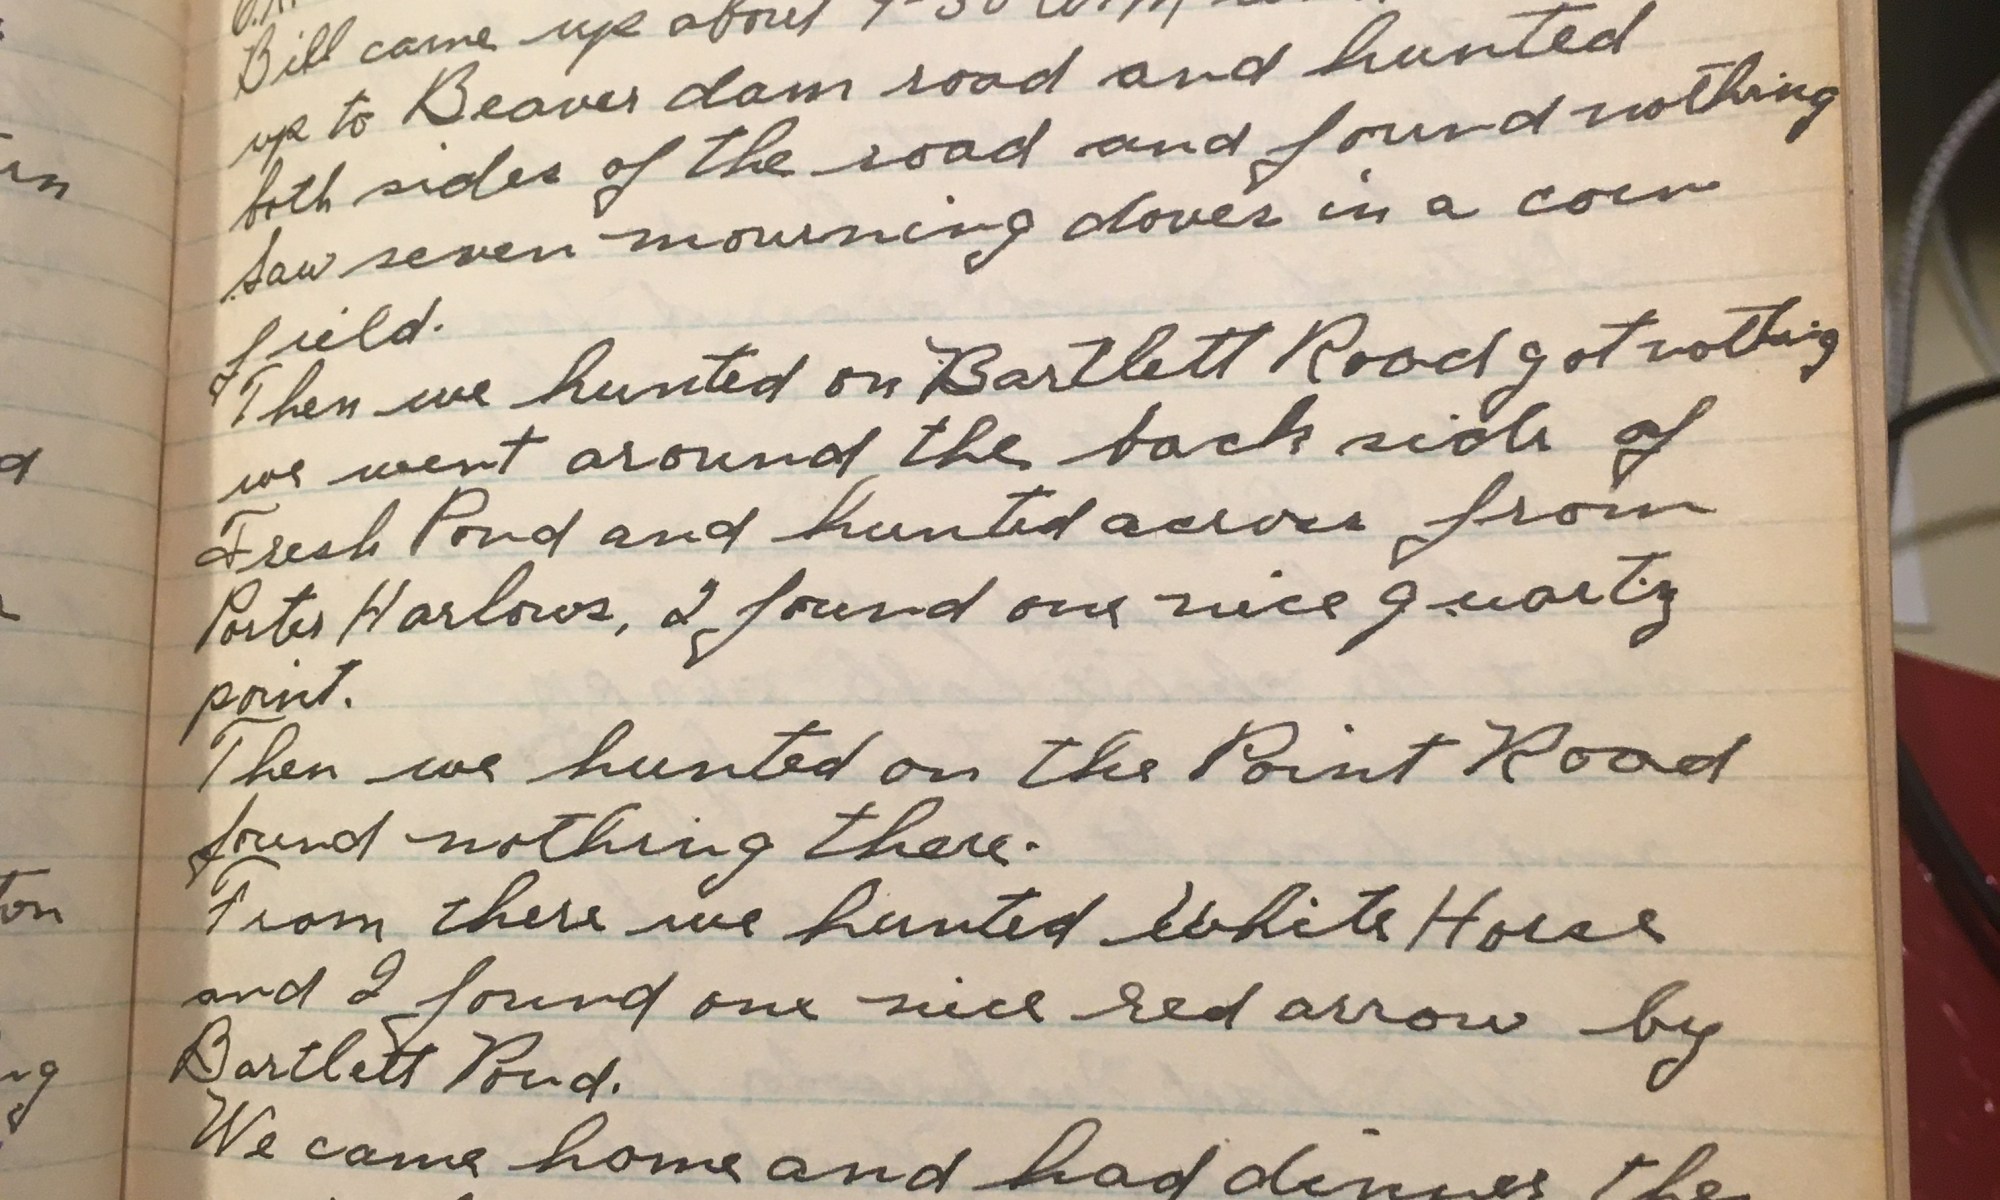 Bill came up about
up to Beaver dam road and hunted
both sides of the road and found nothing
Saw seven mourning doves in a corn
field.
Then we hunted on Bartlett Road got nothing
we went around the back side of
Fresh Pond and hunted across from
Porter Harlows, I found one nice quartz
point.
Then we hunted on the Point Road
found nothing there.
From there we hunted White Horse
and I found one nice red arrow by
Bartlett Pond.
We came home and had dinner the